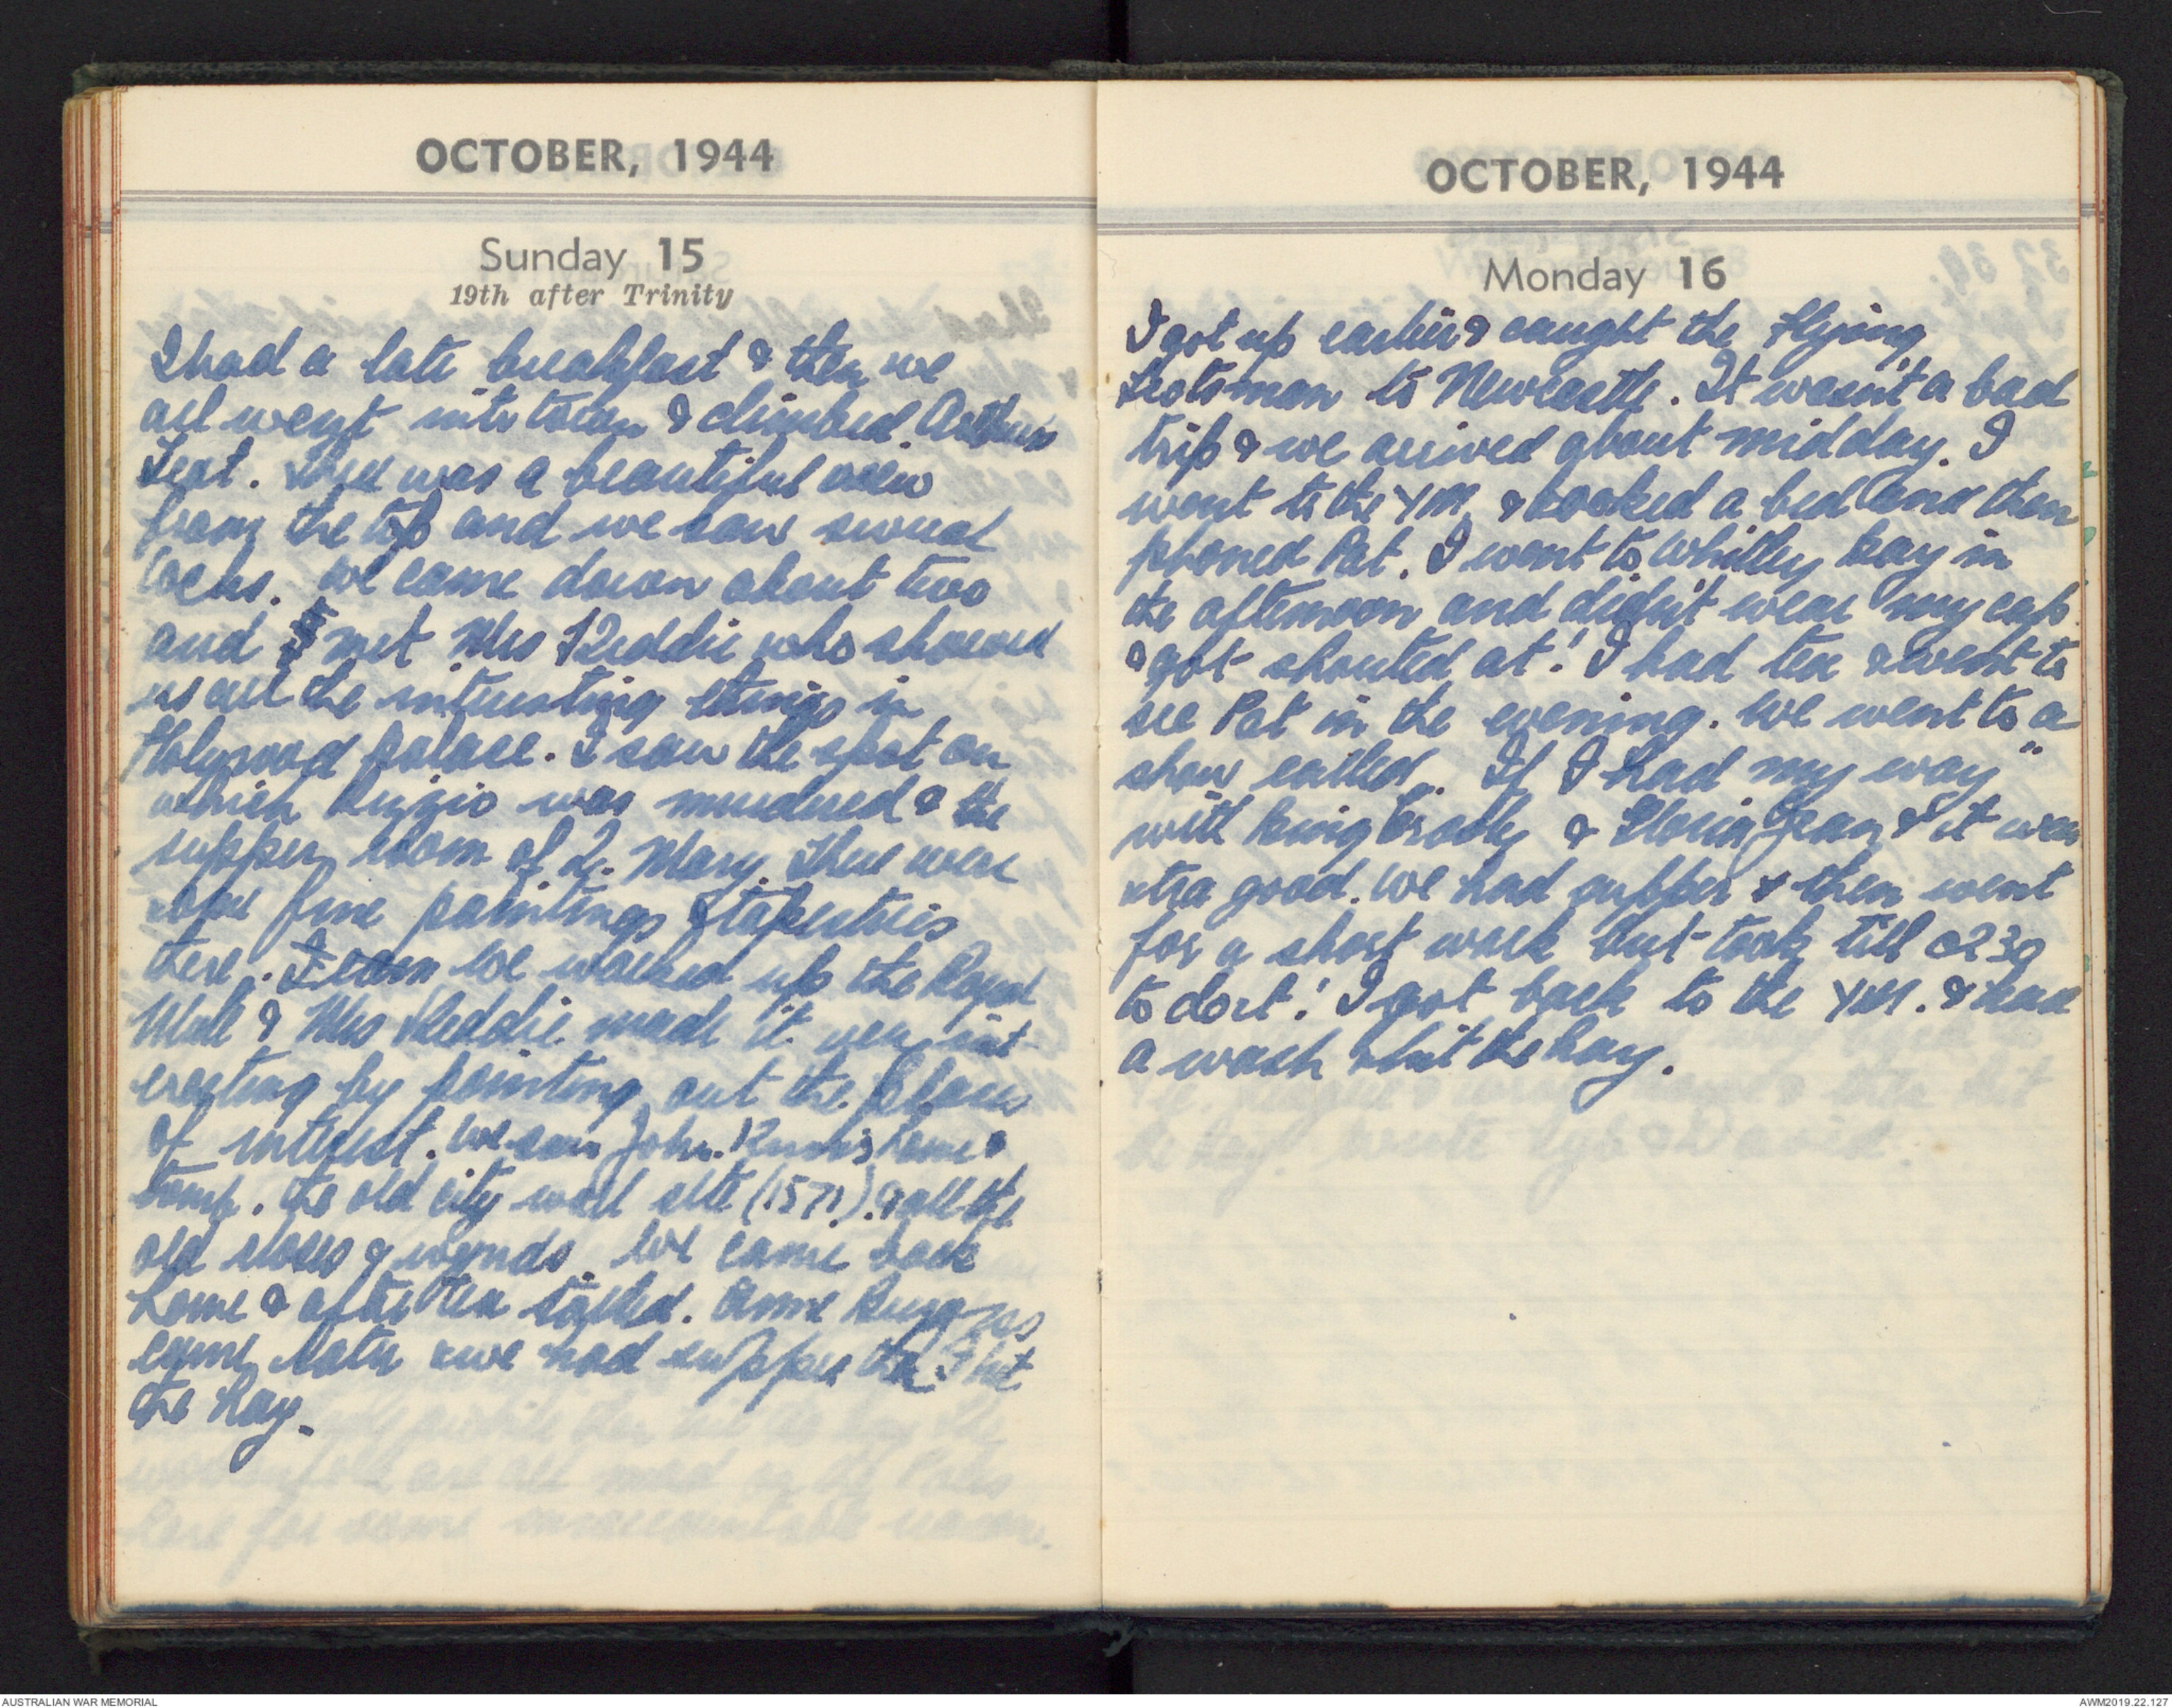 OCTOBER, 1944
Sunday 15
19th after Trinity
I had a late breakfast & then we
all went into town & climbed Arthurs
Seat. There was a beautiful view
from the top and we saw several
lochs. We came down about two
and I met Mrs Keddie who showed
us all the interesting things in
Holyrood Palace. I saw the spot on
which Rizzio was murdered & the
supper room of Q. Mary. There were
some fine paintings & tapestries
there. I saw We walked up the Royal
Mile & Mrs Keddie made it very int
eresting by pointing out the places
of interest. We saw John Knox's home &
tomb. The old city wall site (1571) & all the
old closes & wynds. We came back
home & after tea talked. Anne Burgess
came later & we had supper then I hit
the hay.
OCTOBER, 1944
Monday 16
I got up earlier & caught the Flying
Scotsman to Newcastle. It wasn't a bad
trip & we arrived about midday. I
went to the YM. & booked a bed and then
phoned Pat. I went to Whitley Bay in
the afternoon and didn't wear my cap
& got shouted at! I had tea & went to
see Pat in the evening. We went to a
show called "If I had my way"
with Bing Crosby & Gloria Jean & it was
xtra good. We had supper & then went
for a short walk but took till 0230
to do it! I got back to the YM. & had
a wash & hit the hay.
AUSTRALIAN WAR MEMORIAL
AWM2019.22.127